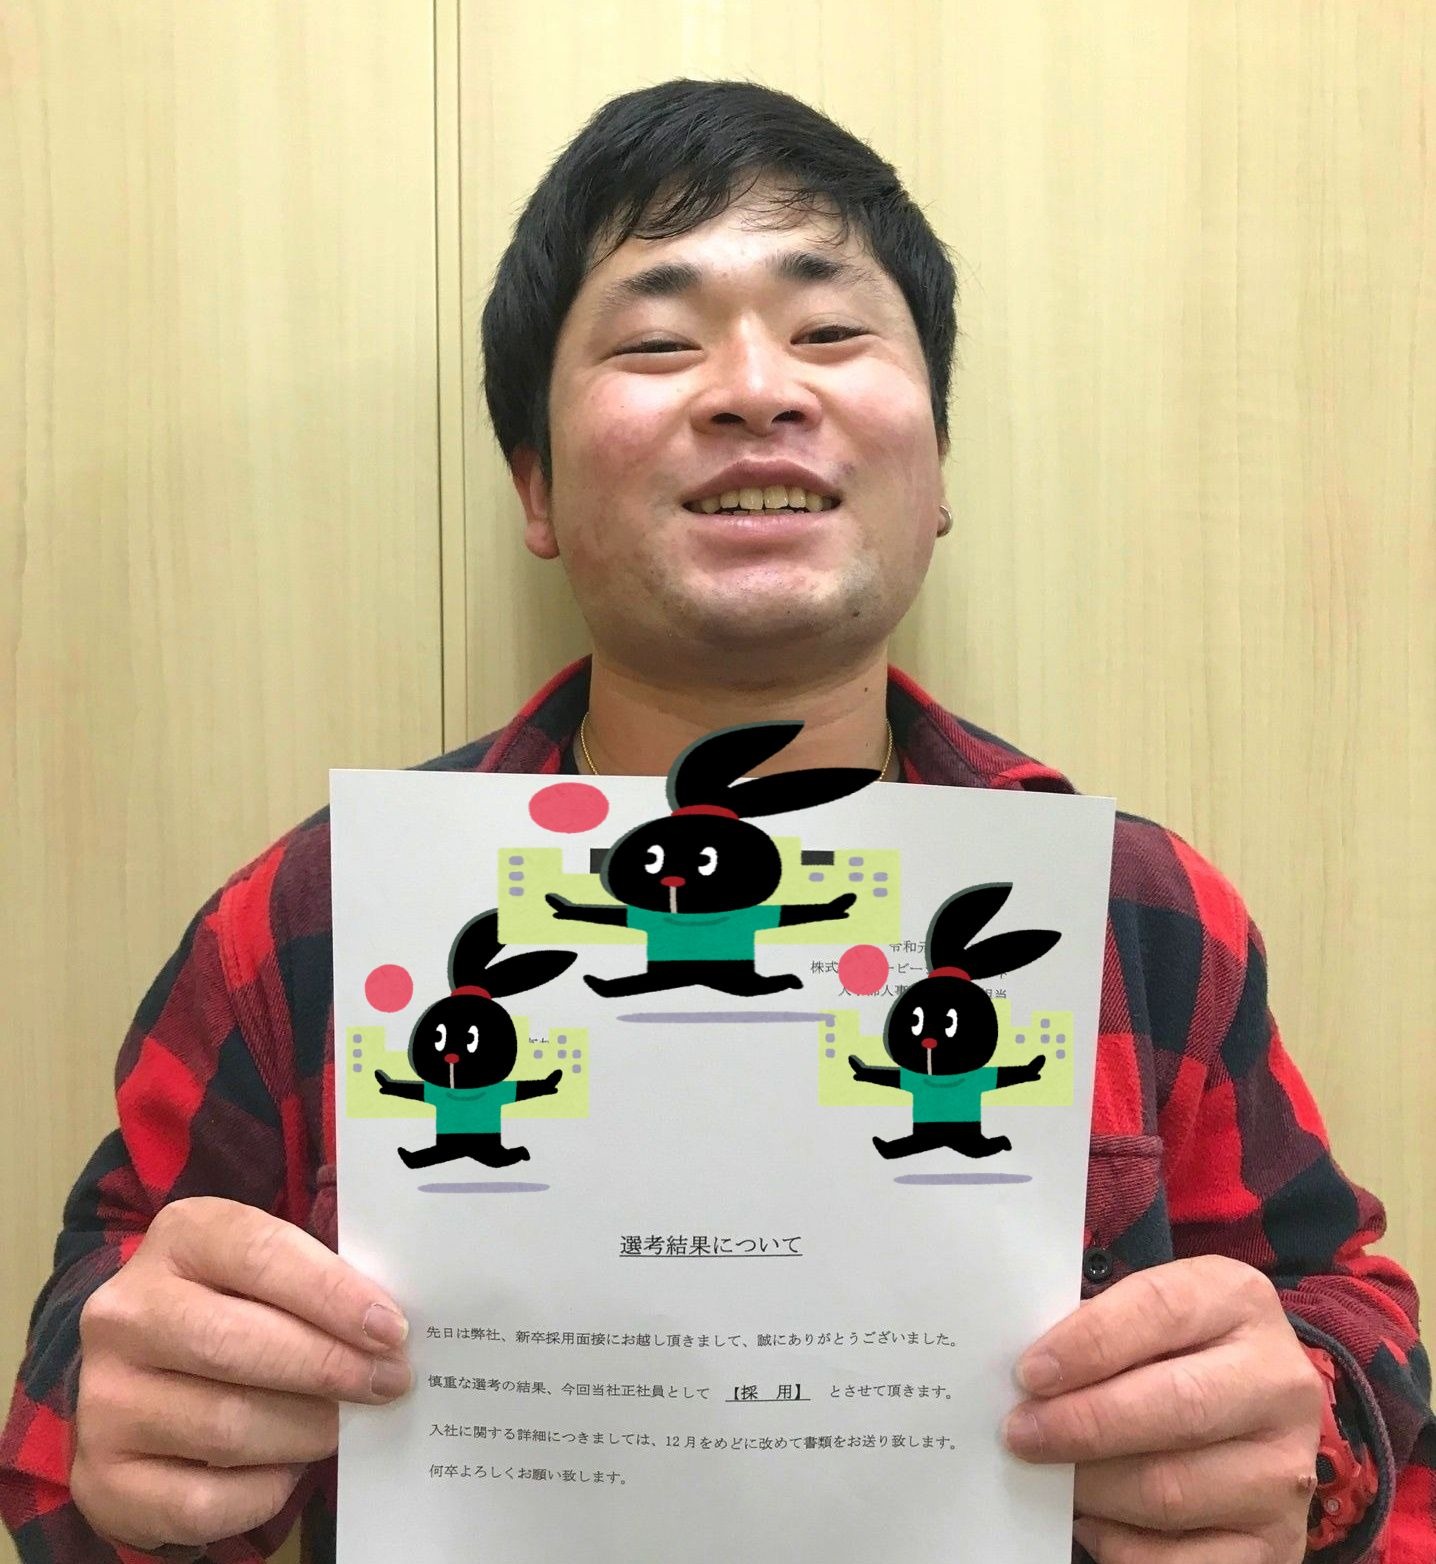 令和元
株式 ービー
人事
担当
選考結果について
先日は弊社、新卒採用面接にお越し頂きまして、誠にありがとうございました。
慎重な選考の結果、今回当社正社員として 【採 用】 とさせて頂きます。
入社に関する詳細につきましては、12月をめどに改めて書類をお送り致します。
何卒よろしくお願い致します。